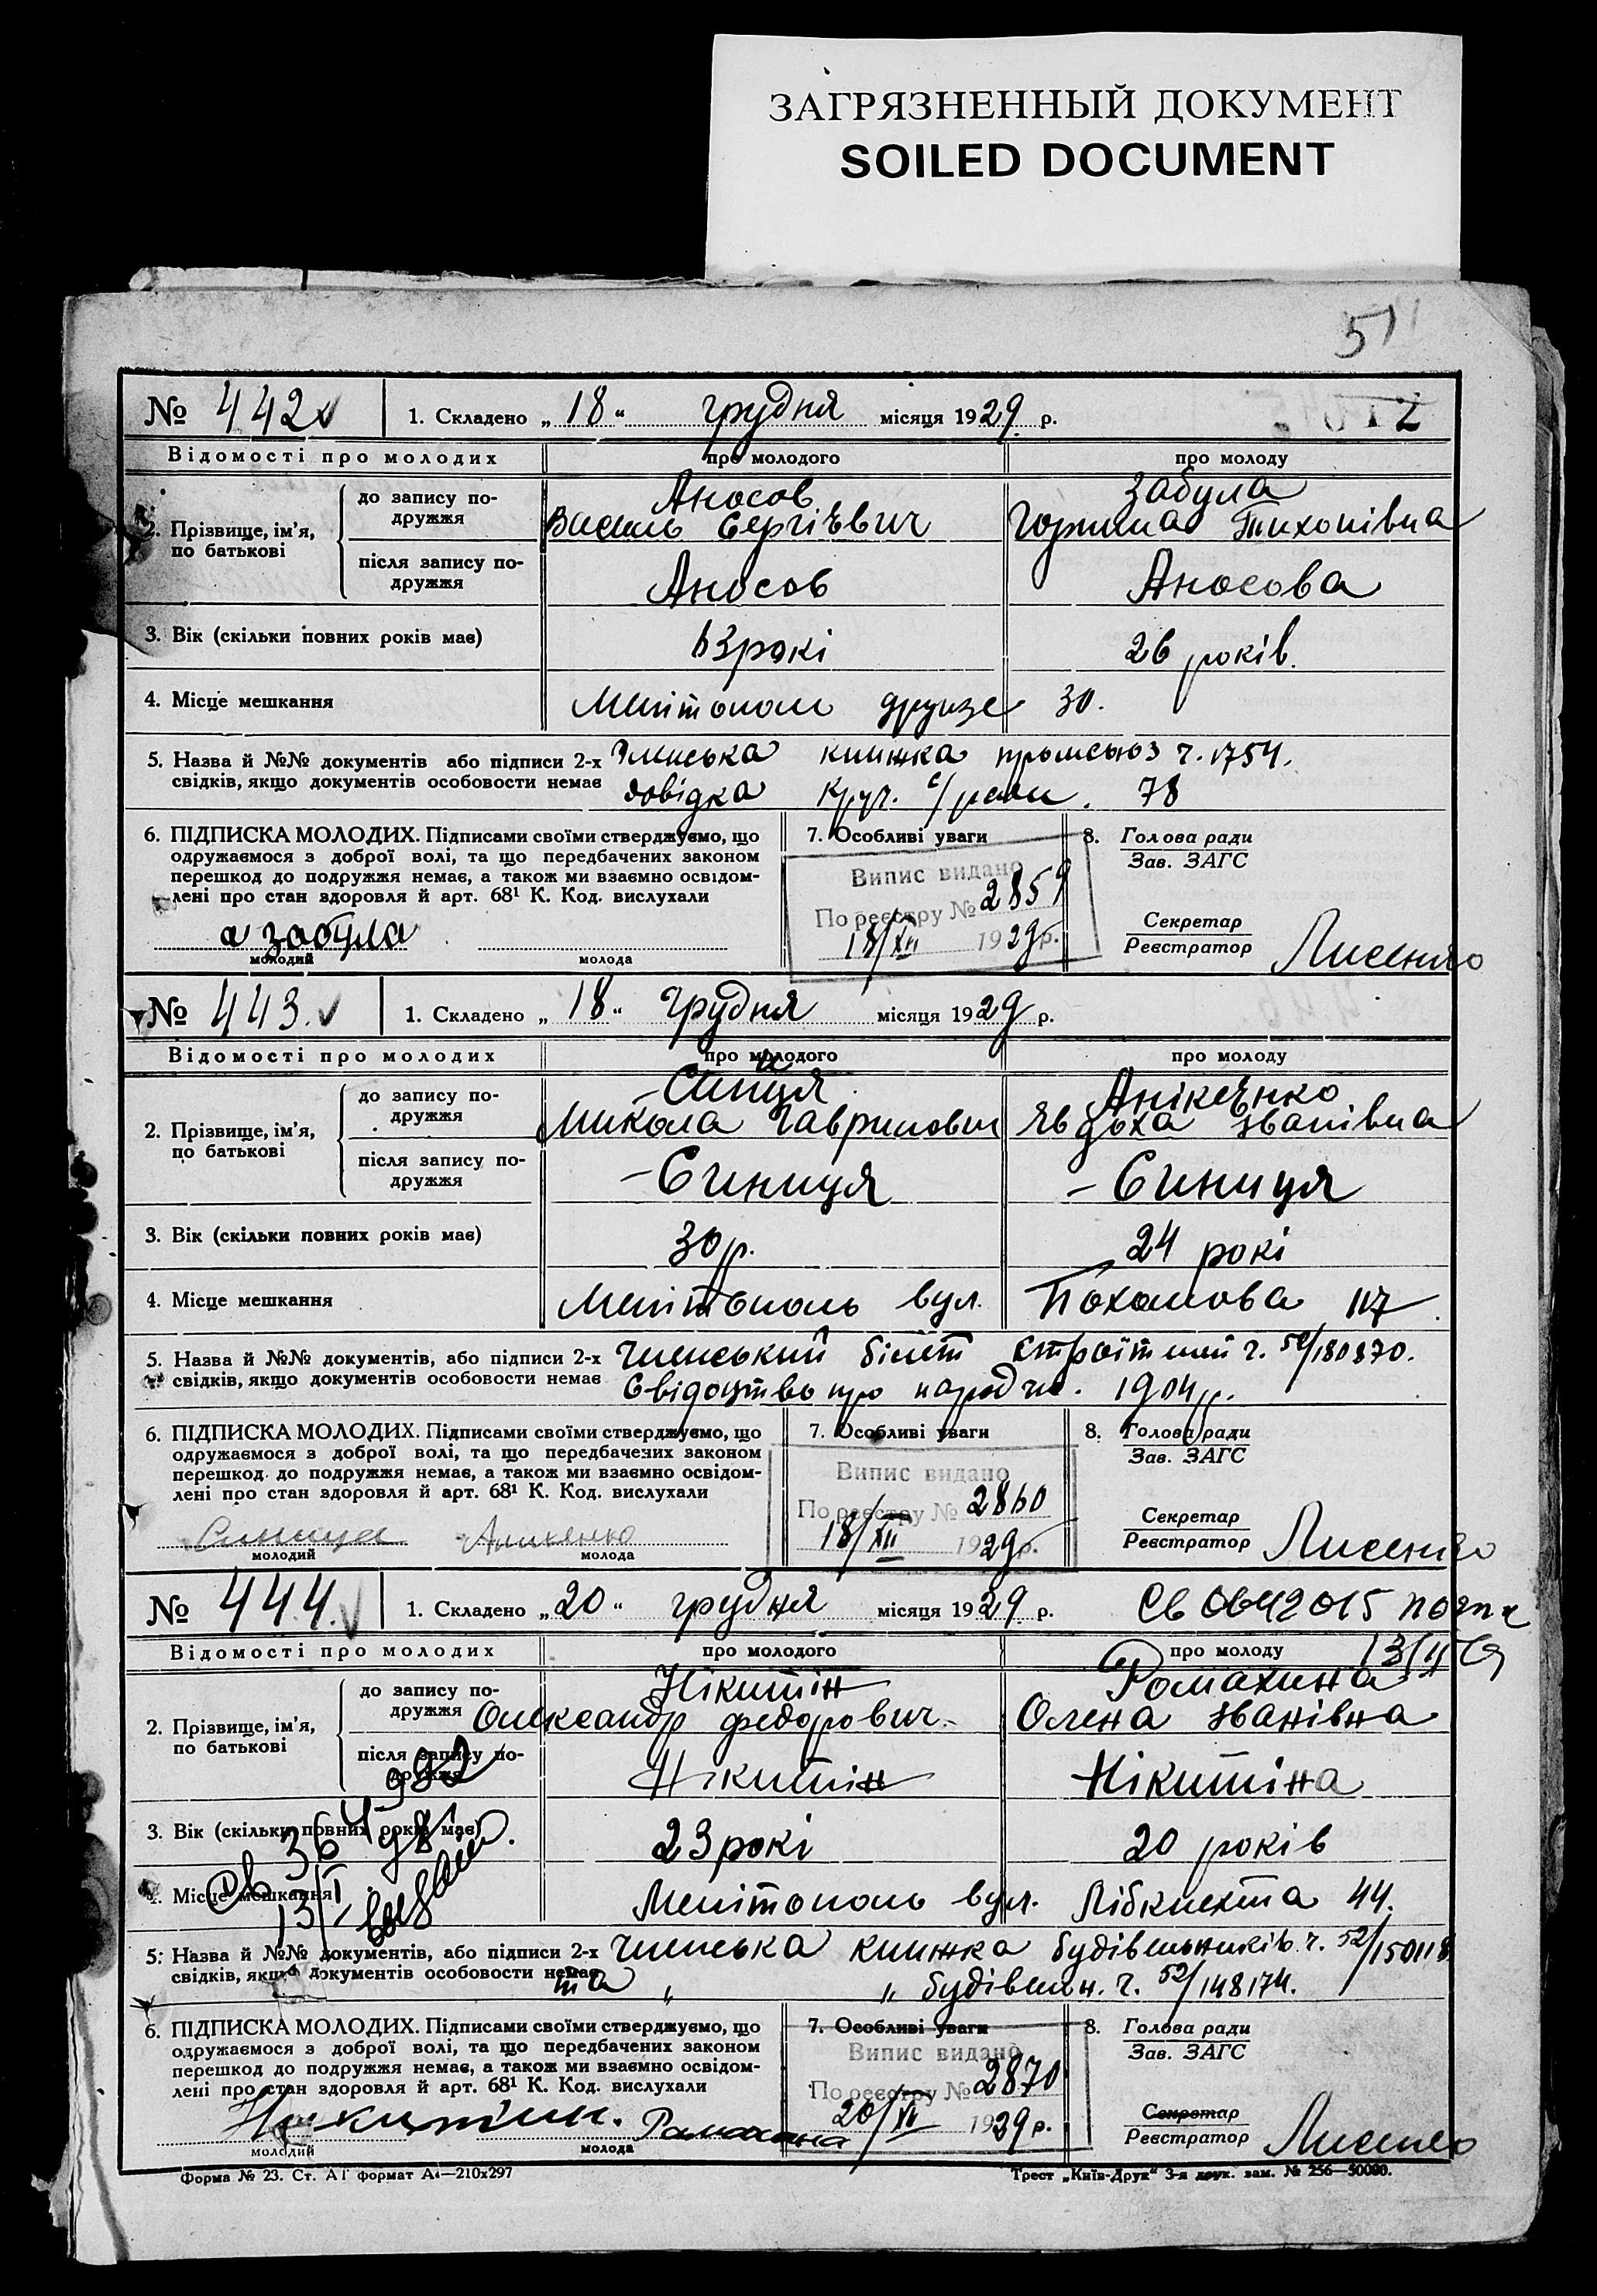 ЗАГРЯЗНЕННЫЙ ДОКУМЕНТ
SOILED DOCUMENT
51
№ 442 1. Складено „18" грудня місяця 1929 р.
Відомості про молодих про молодого про молоду
2. Прізвище, ім'я, по батькові
до запису подружжя
Аносов Забула
Василь Сергієвич Тихонівна
після запису подружжя
Аносов Аносова
3. Вік (скільки повних років має) 63 рокі 26 років.
4. Місце мешкання Мелітополь 30.
5. Назва й №№ документів або підписи 2-х Членська книжка ч. 1754.
свідків, якщо документів особовости немає довідка с/ради. 78
6. ПІДПИСКА МОЛОДИХ. Підписами своїми стверджуємо, що
одружаємося з доброї волі, та що передбачених законом
перешкод до подружжя немає, а також ми взаємно освідом-
лені про стан здоровля й арт. 68¹ К. Код. вислухали
а забула
молодий молода
7. Особливі уваги
Випис видано
По реєстру № 2859
18/XII 1929 р.
8. Голова ради
Зав. ЗАГС
Секретар
Реєстратор Лисенко
№ 443. 1. Складено „18" Грудня місяця 1929 р.
Відомості про молодих про молодого про молоду
2. Прізвище, ім'я, по батькові
до запису подружжя
Анікєнко
Микола Гаврилович Явдоха Іванівна
після запису подружжя
– Синиця – Синиця
3. Вік (скільки повних років має) 30 р. 24 рокі
4. Місце мешкання Мелітополь вул. 117
5. Назва й №№ документів, або підписи 2-х Членський білєт ч. 52/180870.
свідків, якщо документів особовости немає Свідоцтво про народж. 1904 р.
6. ПІДПИСКА МОЛОДИХ. Підписами своїми стверджуємо, що
одружаємося з доброї волі, та що передбачених законом
перешкод до подружжя немає, а також ми взаємно освідом-
лені про стан здоровля й арт. 68¹ К. Код. вислухали
Синица
молодий молода
7. Особливі уваги
Випис видано
По реєстру № 2860
18/XII 1929 р.
8. Голова ради
Зав. ЗАГС
Секретар
Реєстратор Лисенко
№ 444. 1. Складено „20" грудня місяця 1929 р.
Відомості про молодих про молодого про молоду
2. Прізвище, ім'я, по батькові
до запису подружжя
Нікитін Ромахина
Олександр Федорович. Олена Іванівна
після запису подружжя
Нікитін Нікитіна
3. Вік (скільки повних років має) 23 рокі 20 років
4. Місце мешкання Мелітополь вул. Лібкнехта 44.
5. Назва й №№ документів, або підписи 2-х Членська книжка будівельників ч. 52/150118
свідків, якщо документів особовости немає та „ „ будівельн. ч. 52/148174.
6. ПІДПИСКА МОЛОДИХ. Підписами своїми стверджуємо, що
одружаємося з доброї волі, та що передбачених законом
перешкод до подружжя немає, а також ми взаємно освідом-
лені про стан здоровля й арт. 68¹ К. Код. вислухали
молодий молода
7. Особливі уваги
Випис видано
По реєстру № 2870
1929 р.
8. Голова ради
Зав. ЗАГС
Секретар
Реєстратор Лисенко
Форма № 23. Ст. А1 формат А4—210х297 Трест „Київ-Друк" 3-я друк. зам. № 256—50000.